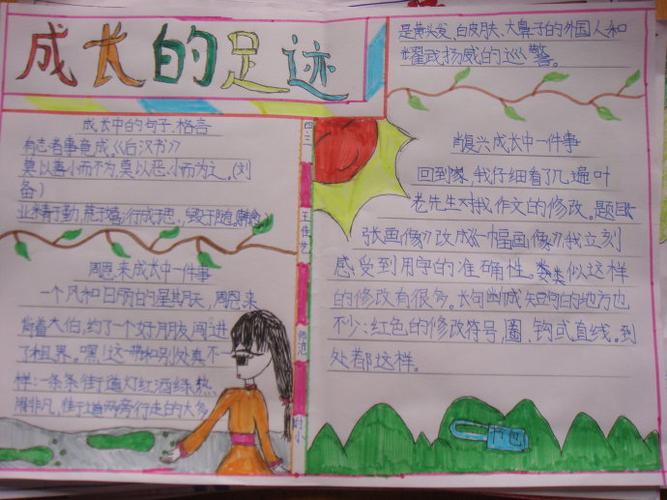 成长的足迹
成长中的句子、格言
有志者事竟成《后汉书》
莫以善小而不为,莫以恶小而为之。(刘
备)
业精于勤,荒于嬉,行成于思,毁于随。韩愈
周恩来成长中一件事
一个风和日丽的星期天,周恩来
背着大伯,约了一个好朋友闯进
了租界。嘿!这一带和别处真不一
样:一条条街道灯红酒绿,热
闹非凡,街道两旁行走的大多
四三
王佳艺
师范
附小
是黄头发、白皮肤、大鼻子的外国人和
耀武扬威的巡警。
肖复兴成长中一件事
回到家,我仔细看了几遍叶
老先生对我作文的修改。题目
张画像》改成《一幅画像》我立刻
感受到用字的准确性。类似这样
的修改有很多。长句断成短句的地方也
不少:红色的修改符号,圈、钩或直线。到
处都这样。